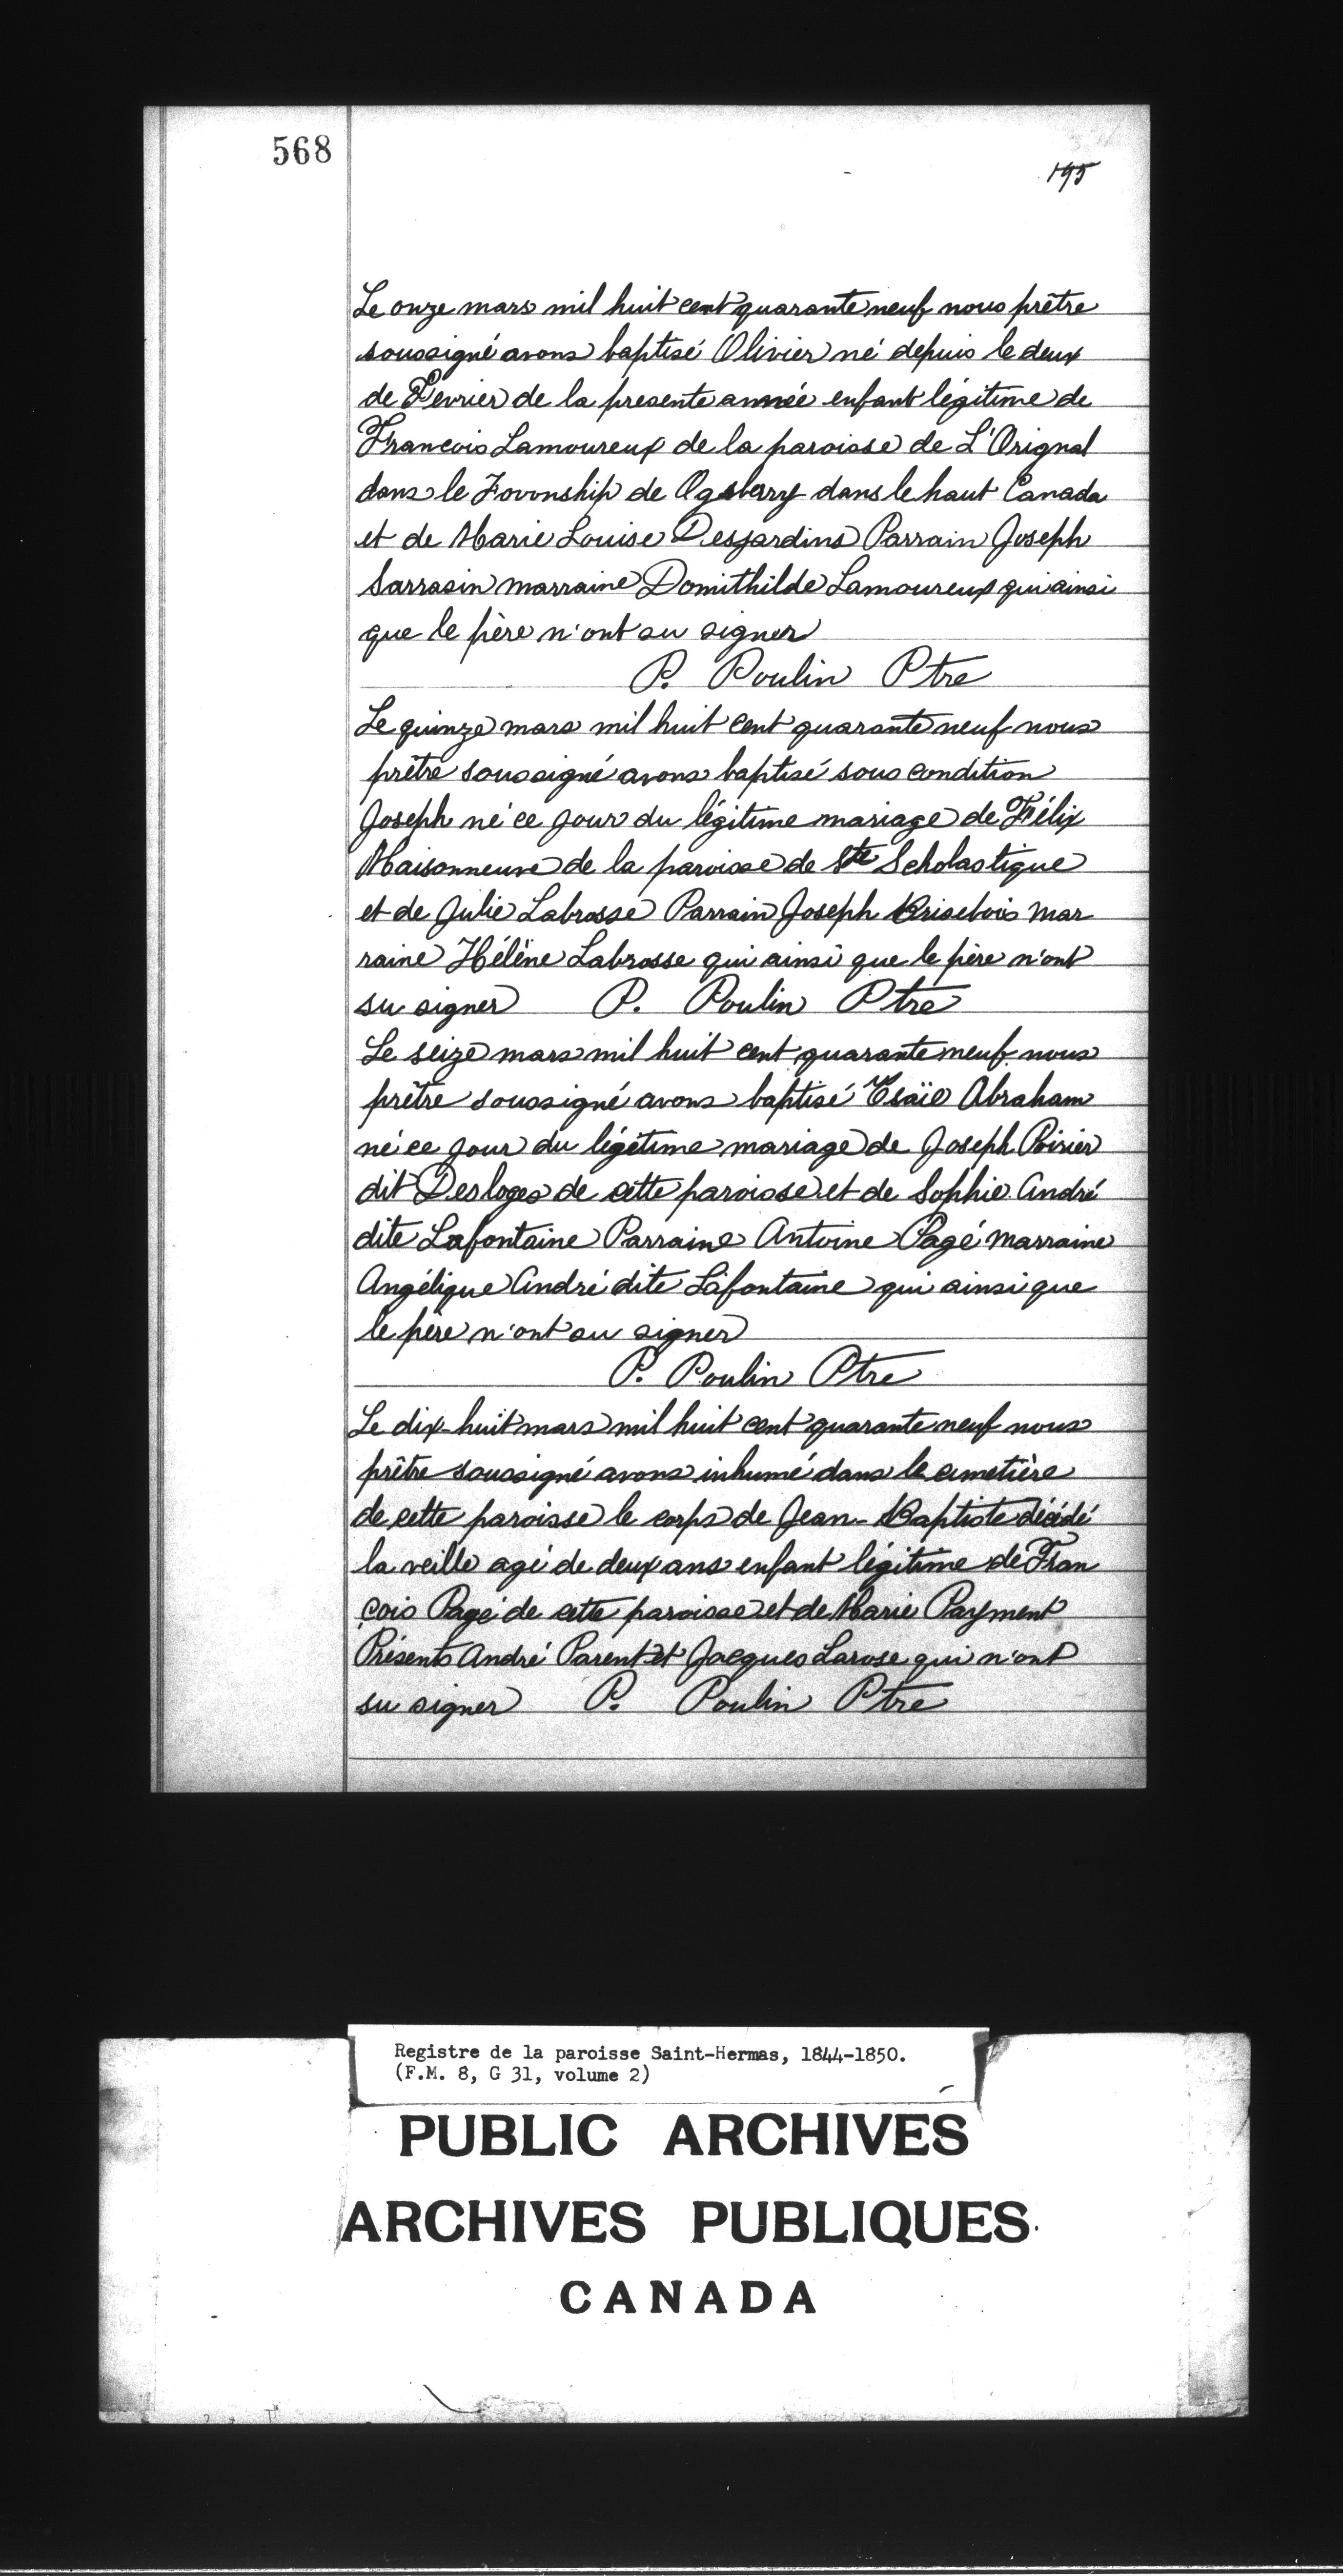 568
195
Le onze mars mil huit cent quarante neuf nous prêtre
soussigné avons baptisé Olivier né depuis le deux
de Fevrier de la presente année enfant légitime de
Francois Lamoureux de la paroisse de L'Orignal
dans le Township de Ogsberry dans le haut Canada
et de Marie Louise Desjardins Parrain Joseph
Sarrasin marraine Domithilde Lamoureux qui ainsi
que le père n'ont su signer
P. Poulin Ptre
Le quinze mars mil huit cent quarante neuf nous
prêtre soussigné avons baptisé sous condition
Joseph né ce jour du légitime mariage de Félix
Maisonneuve de la paroisse de Ste Scholastique
et de Julie Labrosse Parrain Joseph Brisebois mar
raine Hélène Labrosse qui ainsi que le père n'ont
su signer P. Poulin Ptre
Le seize mars mil huit cent quarante neuf nous
prêtre soussigné avons baptisé Esaïe Abraham
né ce jour du légitime mariage de Joseph Poirier
dit Desloges de cette paroisse et de Sophie André
dite Lafontaine Parraine Antoine Pagé marraine
Angélique André dite Lafontaine qui ainsi que
le père n'ont su signer
P. Poulin Ptre
Le dix-huit mars mil huit cent quarante neuf nous
prêtre soussigné avons inhumé dans le cimetière
de cette paroisse le corps de Jean-Baptiste décédé
la veille agé de deux ans enfant légitime de Fran
çois Pagé de cette paroisse et de Marie Payment
Présents André Parent et Jacques Larose qui n'ont
su signer P. Poulin Ptre
Registre de la paroisse Saint-Hermas, 1844-1850.
(F.M. 8, G 31, volume 2)
PUBLIC ARCHIVES
ARCHIVES PUBLIQUES
CANADA